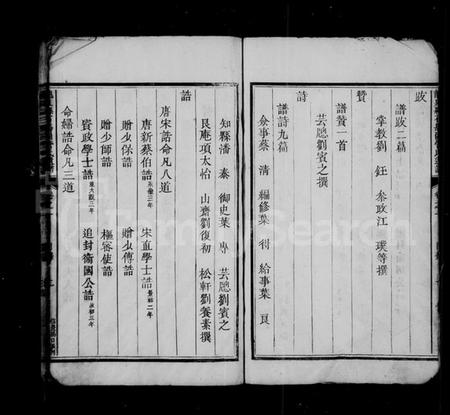 跋
譜跋二篇
掌教劉 鈺 叅政江 璞等撰
贊
譜贊一首
芸牕劉賓之撰
詩
譜詩九篇
僉事蔡 清 編修葉 𧗠 給事葉 良
知縣潘 泰 御史葉 專 芸牕劉賓之
艮庵項太怡 山齋劉復初 松軒劉養素撰
誥
唐宋誥命凡八道
唐新蔡伯誥 宋直學士誥景祐二年
贈少保誥 贈少傅誥
贈少師誥 樞密使誥
資政學士誥 追封衛國公誥
命婦誥命凡三道